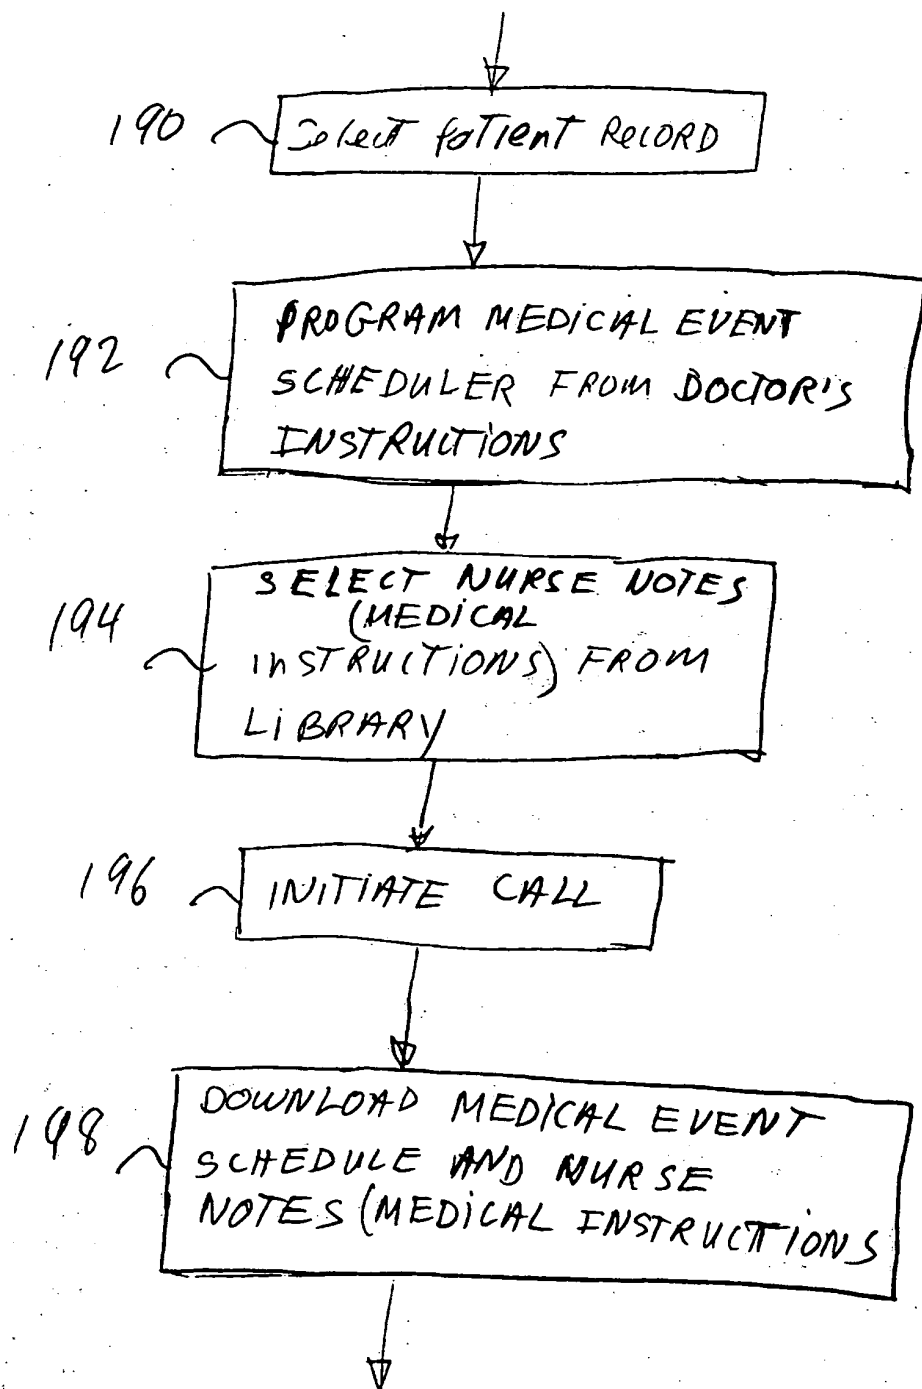 190
Select Patient RECORD
192
PROGRAM MEDICAL EVENT
SCHEDULER FROM DOCTOR'S
INSTRUCTIONS
194
SELECT NURSE NOTES
(MEDICAL
INSTRUCTIONS) FROM
LIBRARY
196
INITIATE CALL
198
DOWNLOAD MEDICAL EVENT
SCHEDULE AND NURSE
NOTES (MEDICAL INSTRUCTIONS